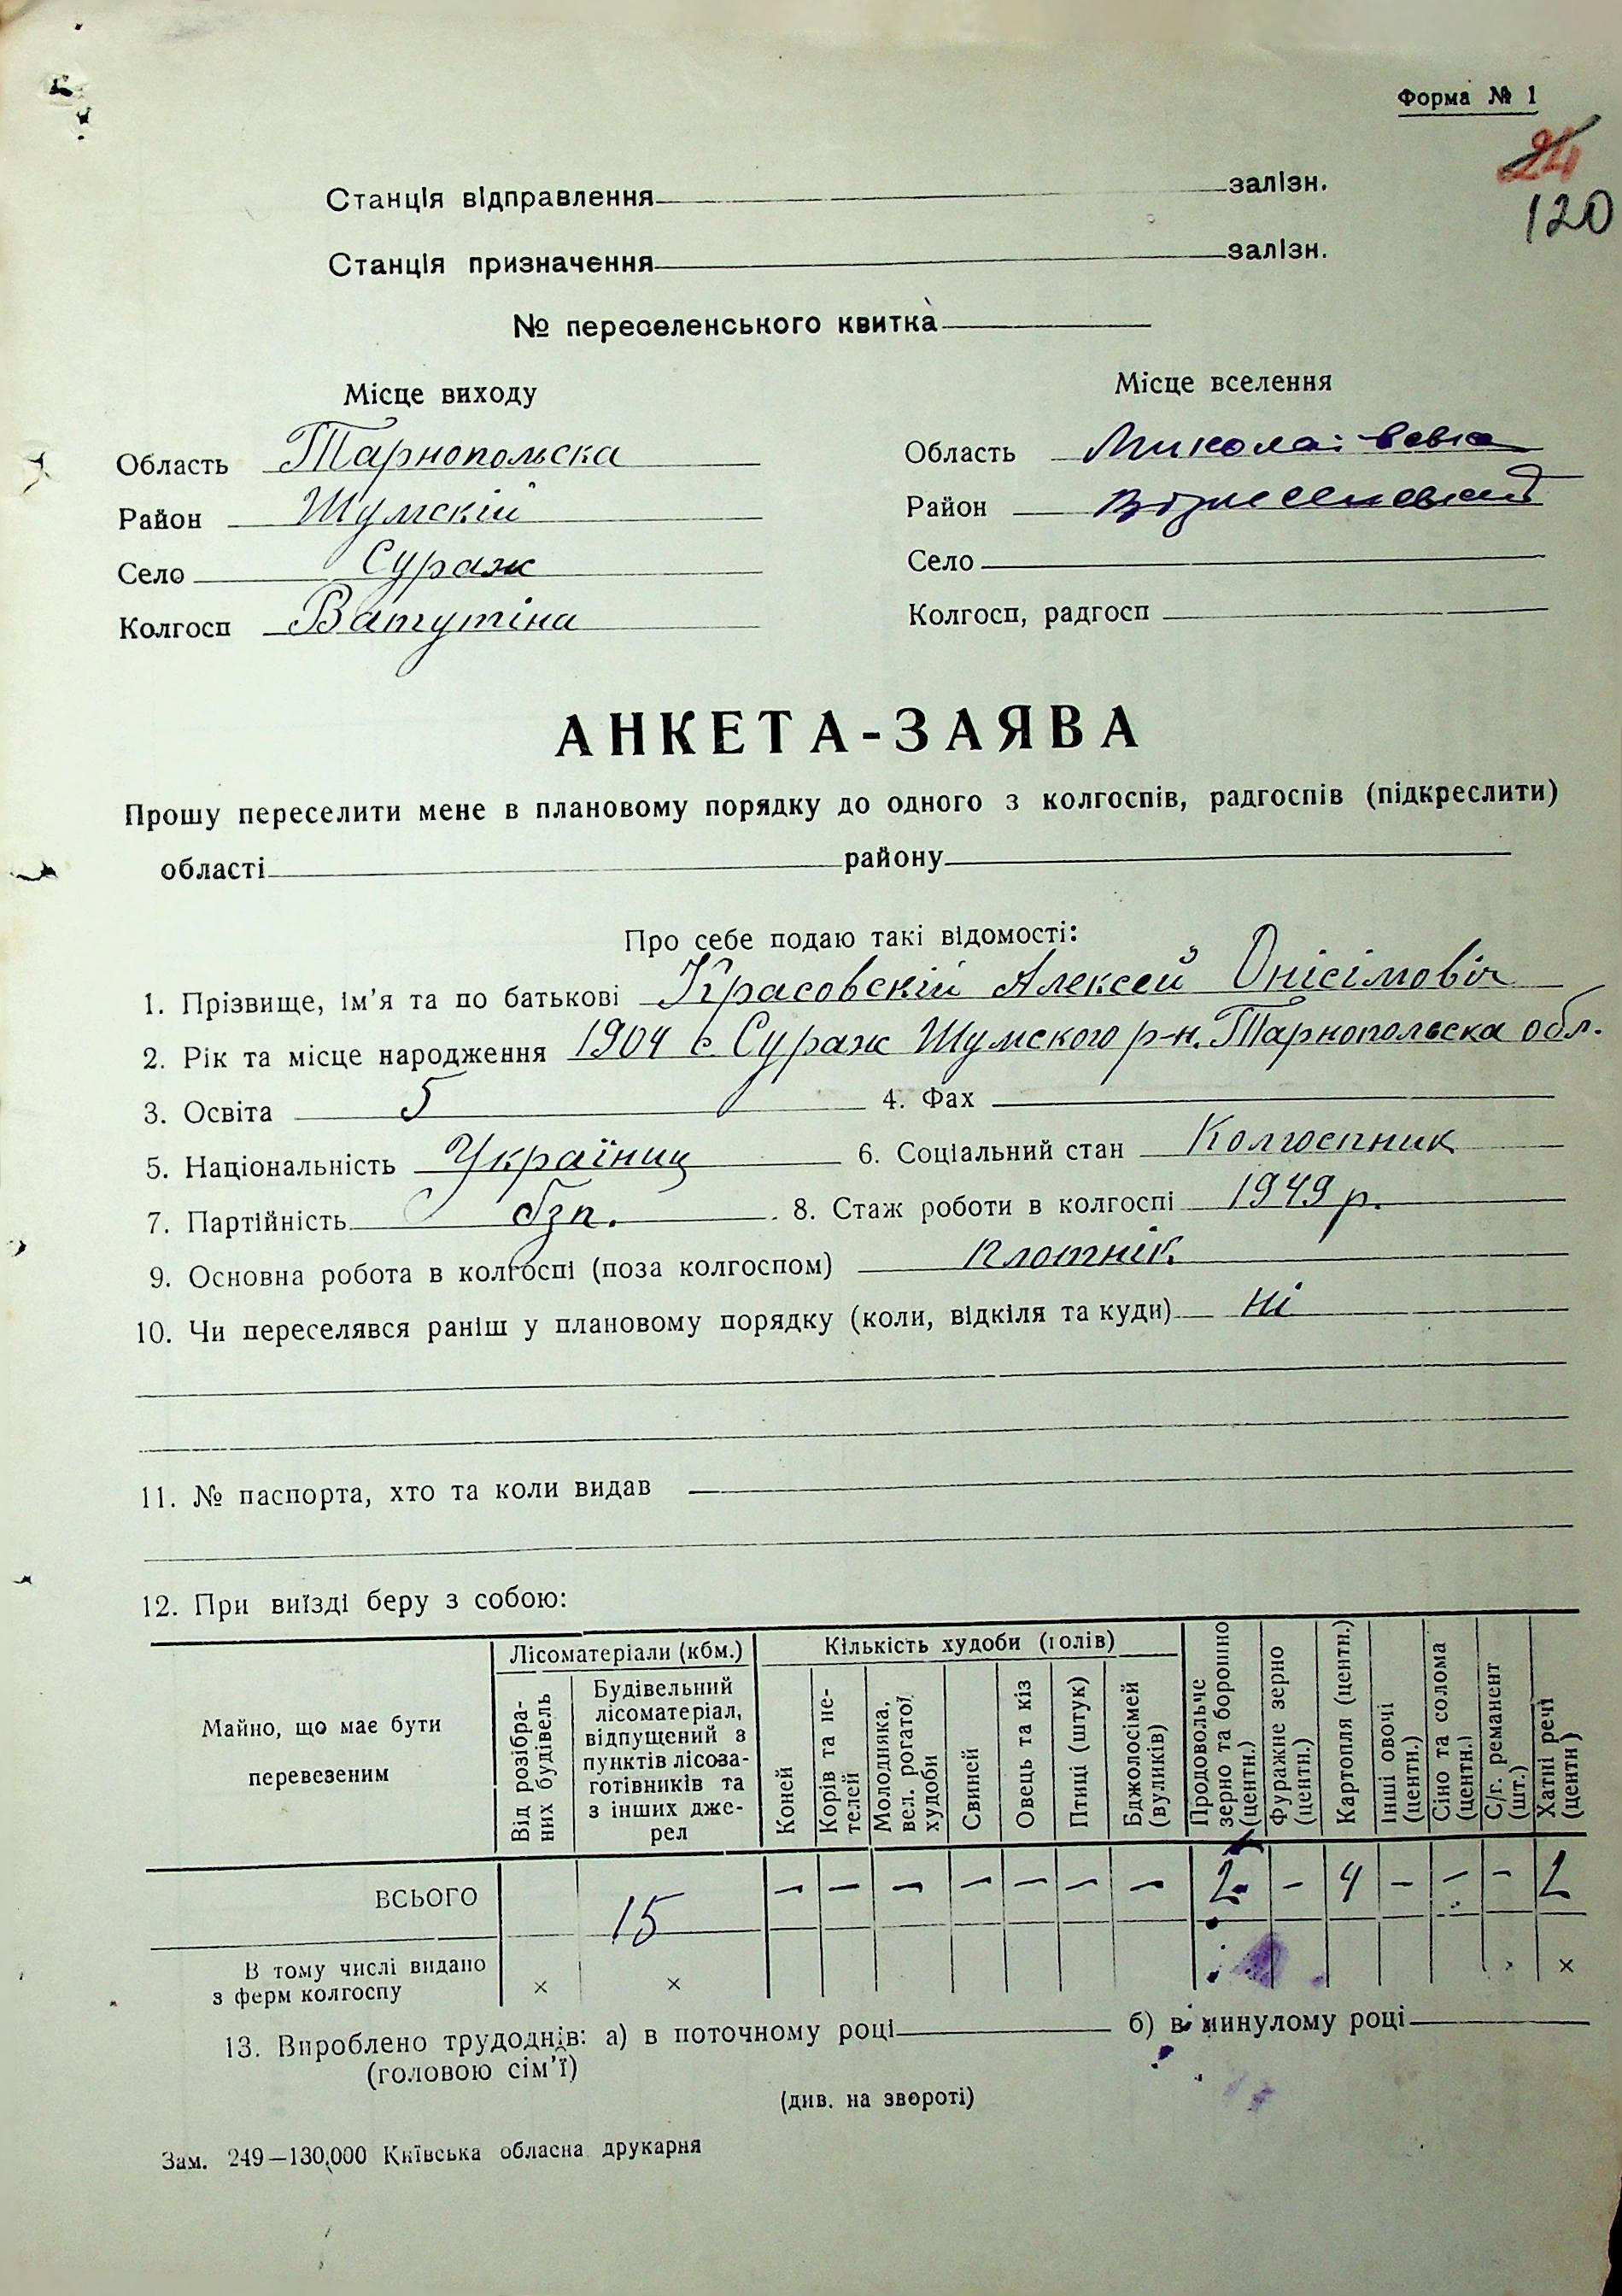 Форма № 1
24
120
Станція відправлення залізн.
Станція призначення залізн.
№ переселенського квитка
Місце виходу Місце вселення
Область Тарнопольска Область Миколаівська
Район Шумскій Район Вознесенский
Село Сураж Село
Колгосп Ватутіна Колгосп, радгосп
АНКЕТА-ЗАЯВА
Прошу переселити мене в плановому порядку до одного з колгоспів, радгоспів (підкреслити)
області району
Про себе подаю такі відомості:
1. Прізвище, ім'я та по батькові Красовскій Алексей Онісімовіч
2. Рік та місце народження 1904 с. Сураж Шумского р-н. Тарнопольска обл.
3. Освіта 5 4. Фах
5. Національність Українец 6. Соціальний стан Колгоспник
7. Партійність бзп. 8. Стаж роботи в колгоспі 1949 р.
9. Основна робота в колгоспі (поза колгоспом) плотнік
10. Чи переселявся раніш у плановому порядку (коли, відкіля та куди) ні
11. № паспорта, хто та коли видав
12. При виїзді беру з собою:
Майно, що має бути перевезеним
Лісоматеріали (кбм.)
Від розібраних будівель
Будівельний
лісоматеріал,
відпущений з
пунктів лісоза-
готівників та
з інших дже-
рел
Кількість худоби (голів)
Коней
Корів та не-
телей
Молодняка,
вел. рогатої
худоби
Свиней
Овець та кіз
Птиці (штук)
Бджолосімей
(вуликів)
Продовольче
зерно та борошно
(центн.)
Фуражне зерно
(центн.)
Картопля (центн.)
Інші овочі
(центн.)
Сіно та солома
(центн.)
С/г. реманент
(шт.)
Хатні речі
(центн)
ВСЬОГО 15 — — — — — — — 2 — 4 — — — 2
В тому числі видано
з ферм колгоспу × × ×
13. Вироблено трудоднів: а) в поточному році б) в минулому році
(головою сім'ї)
(див. на звороті)
Зам. 249—130,000 Київська обласна друкарня